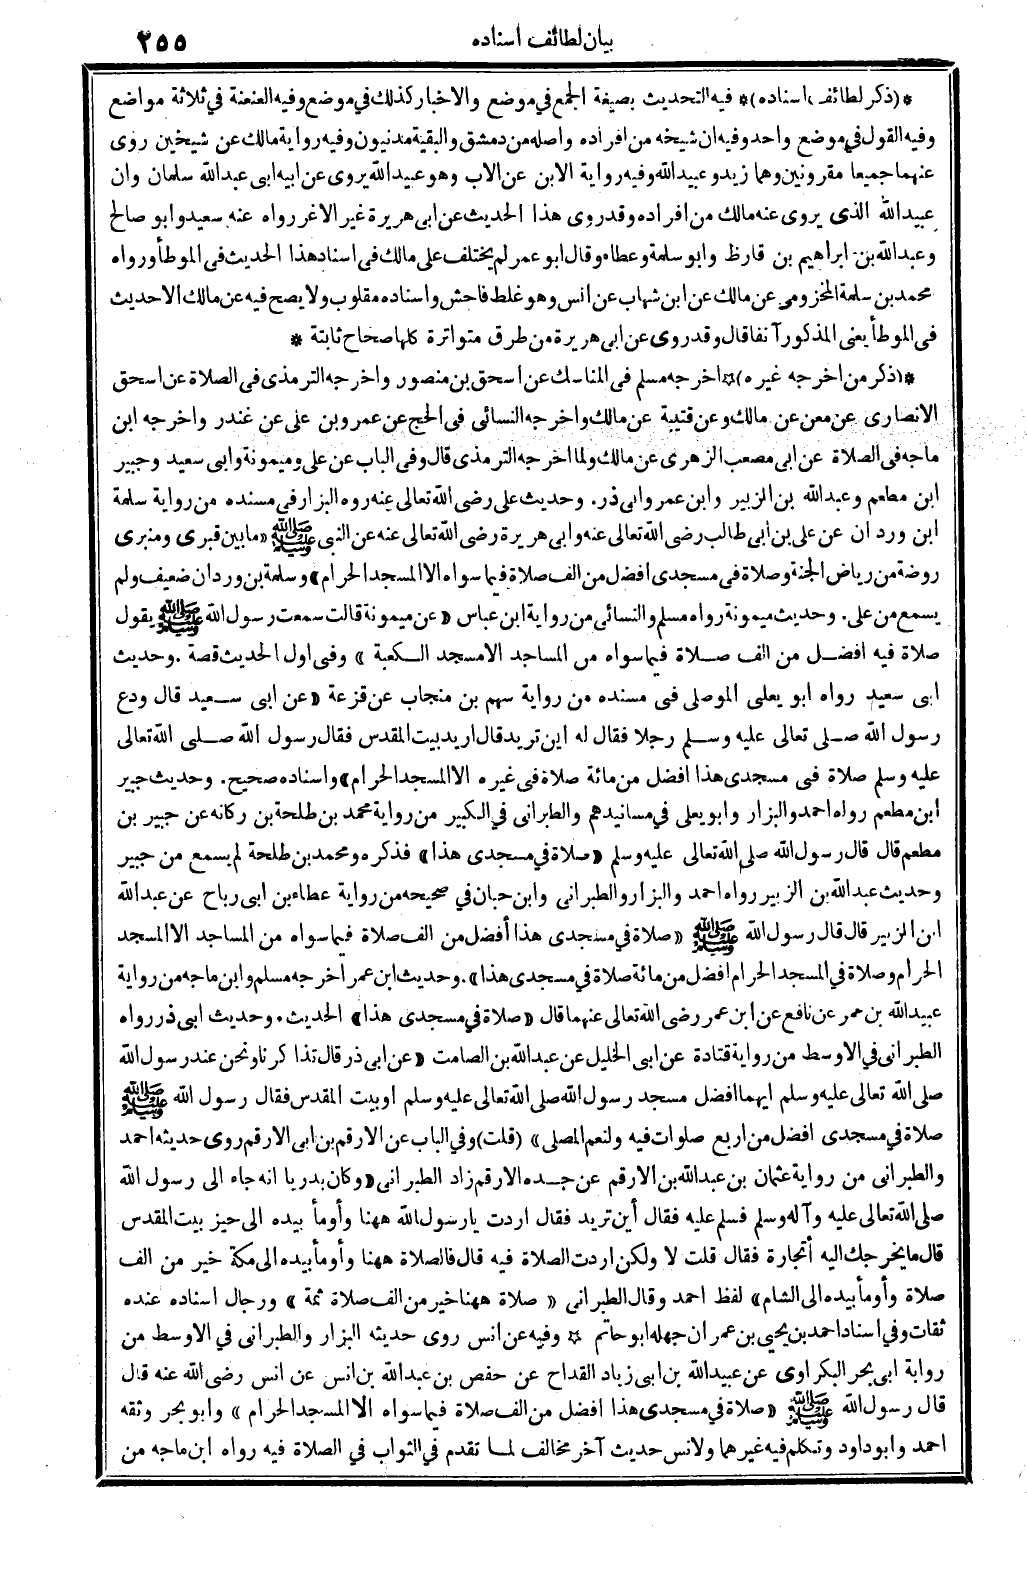 بيان لطائف اسناده
٢٥٥
*(ذكر لطائف اسناده)* فيه التحديث بصيغة الجمع في موضع والاخبار كذلك في موضع وفيه العنعنة في ثلاثة مواضع
وفيه القول في موضع واحد وفيه ان شيخه من افراده واصله من دمشق والبقية مدنيون وفيه رواية مالك عن شيخين روى
عنهما جميعا مقرونين وهما زيد وعبيد الله وفيه رواية الابن عن الاب وهو عبيد الله يروى عن ابيه ابى عبد الله سلمان وان
عبيد الله الذى يروى عنه مالك من افراده وقد روى هذا الحديث عن ابى هريرة غير الاغر رواه عنه سعيد وابو صالح
وعبد الله بن ابراهيم بن قارظ وابو سلمة وعطاء وقال ابو عمر لم يختلف على مالك فى اسناد هذا الحديث فى الموطأ ورواه
محمد بن سلمة المخزومى عن مالك عن ابن شهاب عن انس وهو غلط فاحش واسناده مقلوب ولا يصح فيه عن مالك الا حديث
فى الموطأ يعنى المذكور آنفا قال وقد روى عن ابى هريرة من طرق متواترة كلها صحاح ثابتة *
*(ذكر من اخرجه غيره)* اخرجه مسلم فى المناسك عن اسحق بن منصور واخرجه الترمذى فى الصلاة عن اسحق
الانصارى عن معن عن مالك وعن قتيبة عن مالك واخرجه النسائى فى الحج عن عمرو بن على عن غندر واخرجه ابن
ماجه فى الصلاة عن ابى مصعب الزهرى عن مالك ولما اخرجه الترمذى قال وفى الباب عن على وميمونة وابى سعيد وجبير
ابن مطعم وعبد الله بن الزبير وابن عمر وابى ذر. وحديث على رضى الله تعالى عنه روه البزار فى مسنده من رواية سلمة
ابن وردان عن على بن ابى طالب رضى الله تعالى عنه وابى هريرة رضى الله تعالى عنه عن النبى ﷺ «ما بين قبرى ومنبرى
روضة من رياض الجنة وصلاة فى مسجدى افضل من الف صلاة فيما سواه الا المسجد الحرام» وسلمة بن وردان ضعيف ولم
يسمع من على. وحديث ميمونة رواه مسلم والنسائى من رواية ابن عباس «عن ميمونة قالت سمعت رسول الله ﷺ يقول
صلاة فيه افضل من الف صلاة فيما سواه من المساجد الا مسجد الكعبة» وفى اول الحديث قصة. وحديث
ابى سعيد رواه ابو يعلى الموصلى فى مسنده من رواية سهم بن منجاب عن قزعة «عن ابى سعيد قال ودع
رسول الله صلى تعالى عليه وسلم رجلا فقال له اين تريد قال اريد بيت المقدس فقال رسول الله صلى الله تعالى
عليه وسلم صلاة فى مسجدى هذا افضل من مائة صلاة فى غيره الا المسجد الحرام» واسناده صحيح. وحديث جبير
ابن مطعم رواه احمد والبزار وابو يعلى في مسانيدهم والطبرانى في الكبير من رواية محمد بن طلحة بن ركانه عن جبير بن
مطعم قال قال رسول الله صلى الله تعالى عليه وسلم «صلاة في مسجدى هذا» فذكره ومحمد بن طلحة لم يسمع من جبير
وحديث عبد الله بن الزبير رواه احمد والبزار والطبرانى وابن حبان في صحيحه من رواية عطاء بن ابى رباح عن عبد الله
ابن الزبير قال قال رسول الله ﷺ «صلاة في مسجدى هذا أفضل من الف صلاة فيما سواه من المساجد الا المسجد
الحرام وصلاة في المسجد الحرام افضل من مائة صلاة في مسجدى هذا». وحديث ابن عمر اخرجه مسلم وابن ماجه من رواية
عبيد الله بن عمر عن نافع عن ابن عمر رضى الله تعالى عنهما قال «صلاة في مسجدى هذا» الحديث. وحديث ابى ذر رواه
الطبرانى في الاوسط من رواية قتادة عن ابى الخليل عن عبد الله بن الصامت «عن ابى ذر قال تذاكرنا ونحن عند رسول الله
صلى الله تعالى عليه وسلم ايهما افضل مسجد رسول الله صلى الله تعالى عليه وسلم او بيت المقدس فقال رسول الله ﷺ
صلاة في مسجدى افضل من اربع صلوات فيه ولنعم المصلى» (قلت) وفي الباب عن الارقم بن ابى الارقم روى حديثه احمد
والطبرانى من رواية عثمان بن عبد الله بن الارقم عن جده الارقم زاد الطبرانى «وكان بدريا انه جاء الى رسول الله
صلى الله تعالى عليه وآله وسلم فسلم عليه فقال أين تريد فقال اردت يا رسول الله ههنا وأومأ بيده الى حيز بيت المقدس
قال ما يخرجك اليه أتجارة فقال قلت لا ولكن اردت الصلاة فيه قال فالصلاة ههنا وأومأ بيده الى مكة خير من الف
صلاة وأومأ بيده الى الشام» لفظ احمد وقال الطبرانى «صلاة ههنا خير من الف صلاة ثمة» ورجال اسناده عنده
ثقات وفي اسناد احمد بن يحيى بن عمران جهله ابو حاتم * وفيه عن انس روى حديثه البزار والطبرانى في الاوسط من
رواية ابى بحر البكراوى عن عبيد الله بن ابى زياد القداح عن حفص بن عبد الله بن انس عن انس رضى الله عنه قال
قال رسول الله ﷺ «صلاة في مسجدى هذا افضل من الف صلاة فيما سواه الا المسجد الحرام» وابو بحر وثقه
احمد وابو داود وتكلم فيه غيرهما ولانس حديث آخر مخالف لما تقدم في الثواب في الصلاة فيه رواه ابن ماجه من